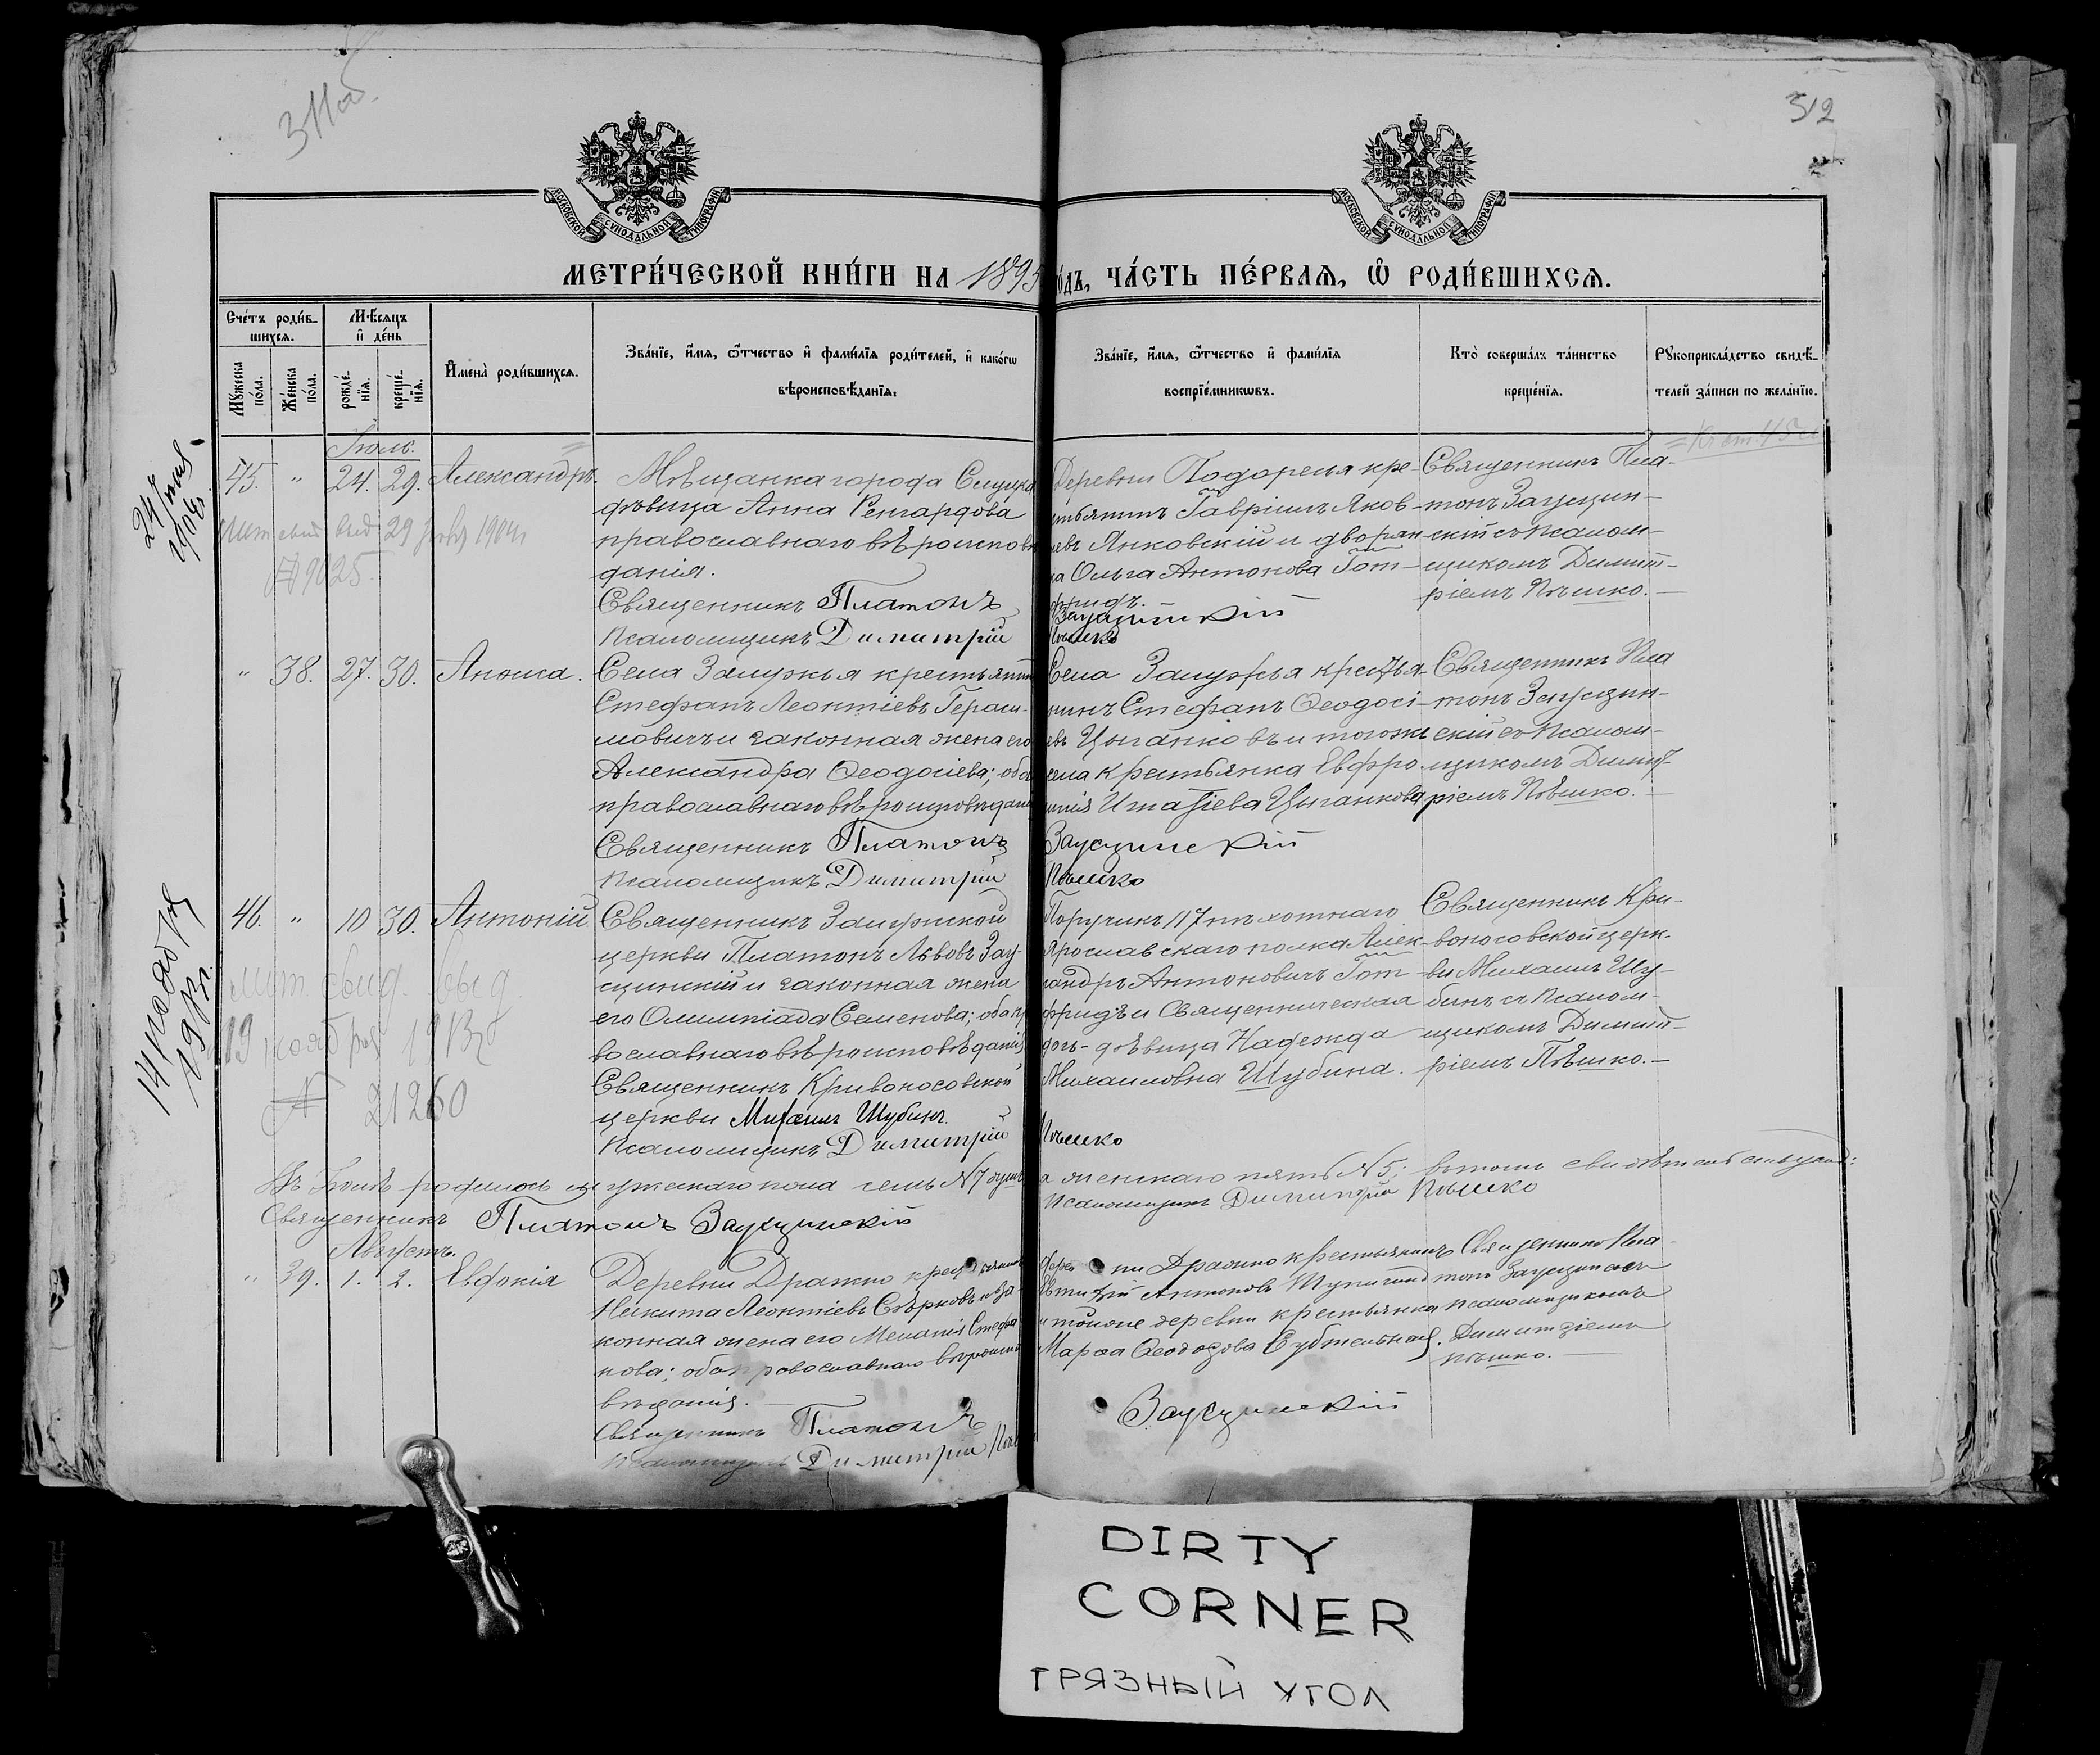 311об
312
МОСКОВСКОЙ СѴНОДАЛЬНОЙ ТИПОГРАФІИ
МОСКОВСКОЙ СѴНОДАЛЬНОЙ ТИПОГРАФІИ
МЕТРИ́ЧЕСКОЙ КНИ́ГИ НА 1895 го́дъ, ЧА́СТЬ ПЕ́РВАЯ, Ѿ РОДИ́ВШИХСЯ.
Сче́тъ роди́вшихся.
Мѣ́сяцъ и де́нь
Мꙋ́жеска по́ла.
Же́нска по́ла.
рожде́нїя.
креще́нїя.
И҆мена̀ роди́вшихся.
Зва́нїе, и҆́мя, ѻ҆́тчество и҆ фами́лїя роди́телей, и҆ како́гѡ
вѣроисповѣ́данїя.
Зва́нїе, и҆́мя, ѻ҆́тчество и҆ фами́лїя
воспрїе́мникѡвъ.
Кто̀ соверша́лъ та́инство
креще́нїя.
Рꙋкоприкла́дство свидѣ́-
телей за́писи по жела́нїю.
Іюль.
45. " 24. 29. Александръ.
Мѣщанка города Слуцка
дѣвица Анна Ренгардова
православнаго вѣроисповѣ
данія.
Священникъ Платонъ Заусцинскій
Псаломщикъ Димитрій Пѣшко
Деревни Подоресья кре-
стьянинъ Гавріилъ Яков-
левъ Янковскій и дворян
ка Ольга Антонова Гот-
фридъ.
Священникъ Пла-
тонъ Заусцин-
скій съ Псалом-
щикомъ Димит-
ріемъ Пѣшко.
24
1906г.
29 1904г
№ 9025.
" 38. 27. 30. Анѳиса.
Села Залужья крестьянин
Стефанъ Леонтіевъ Гераси-
мовичъ и законная жена его
Александра Ѳеодосіева; оба
православнаго вѣроисповѣдані
Священникъ Платонъ Заусцинскій
Псаломщикъ Димитрій Пѣшко
Села Залужья крестья-
нинъ Стефанъ Ѳеодосі-
евъ Цыганковъ и тогожъ
села крестьянка Евфро-
синія Игнатіева Цыганкова
Священникъ Пла
тонъ Заусцин-
скій съ Псалом-
щикомъ Димит-
ріемъ Пѣшко.
46. " 10 30. Антоній.
Священникъ Залужской
церкви Платонъ Львовъ Зау-
сцинскій и законная жена
его Олимпіада Семенова; оба пр
вославнаго вѣроисповѣданія
Священникъ Кривоносовской
церкви Михаилъ Шубинъ.
Псаломщикъ Димитрій Пѣшко
Поручикъ 117 пѣхотнаго
Ярославскаго полка Алек-
сандръ Антоновичъ Гот-
фридъ и Священническая
дочь-дѣвица Надежда
Михаиловна Шубина.
Священникъ Кри-
воносовской церк-
ви Михаилъ Шу-
бинъ съ Псалом-
щикомъ Димит-
ріемъ Пѣшко.
14 ноября
1913г.
мет. свид. выд
19 ноября 1913г
№ 21260
Въ Іюлѣ родилось мужескаго пола семь №7 душъ а женскаго пять №5;
Священникъ Платонъ Заусцинскій Псаломщикъ Димитрій Пѣшко
Августъ.
" 39. 1. 2. Евдокія
Деревни Дражно крестьянинъ
Никита Леонтіевъ Сѣрковъ и за-
конная жена его Меланія Стефа
нова; оба православнаго вѣроиспо
вѣданія.
Священникъ Платонъ Заусцинскій
Псаломщикъ Димитрій Пѣш
Деревни Дражно крестьянинъ
Антоновъ
и тойже деревни крестьянка
Марѳа
Священникъ Пла
тонъ Заусцинскій
псаломщикомъ
Димитріемъ
Пѣшко.
DIRTY
CORNER
ГРЯЗНЫЙ УГОЛ